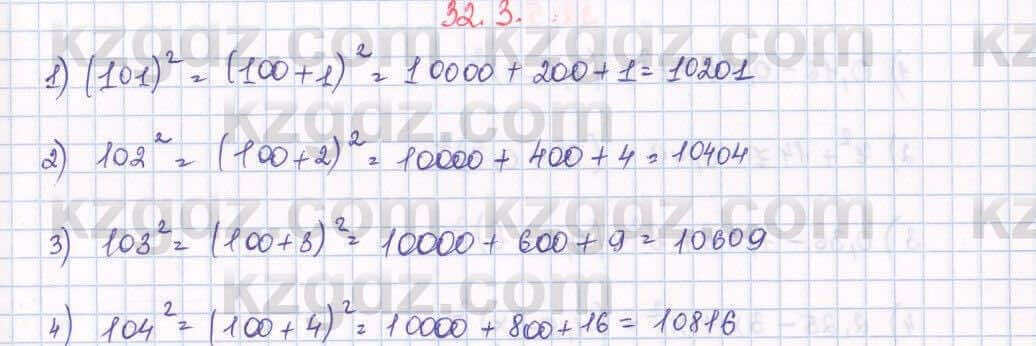 32.3.
1) (101)² = (100+1)² = 10000 + 200 + 1 = 10201
2) 102² = (100+2)² = 10000 + 400 + 4 = 10404
3) 103² = (100+3)² = 10000 + 600 + 9 = 10609
4) 104² = (100+4)² = 10000 + 800 + 16 = 10816
kzgdz.com kzgdz.com kz
kzgdz.com
kzgdz.com kzgdz.com kz
kzgdz.com